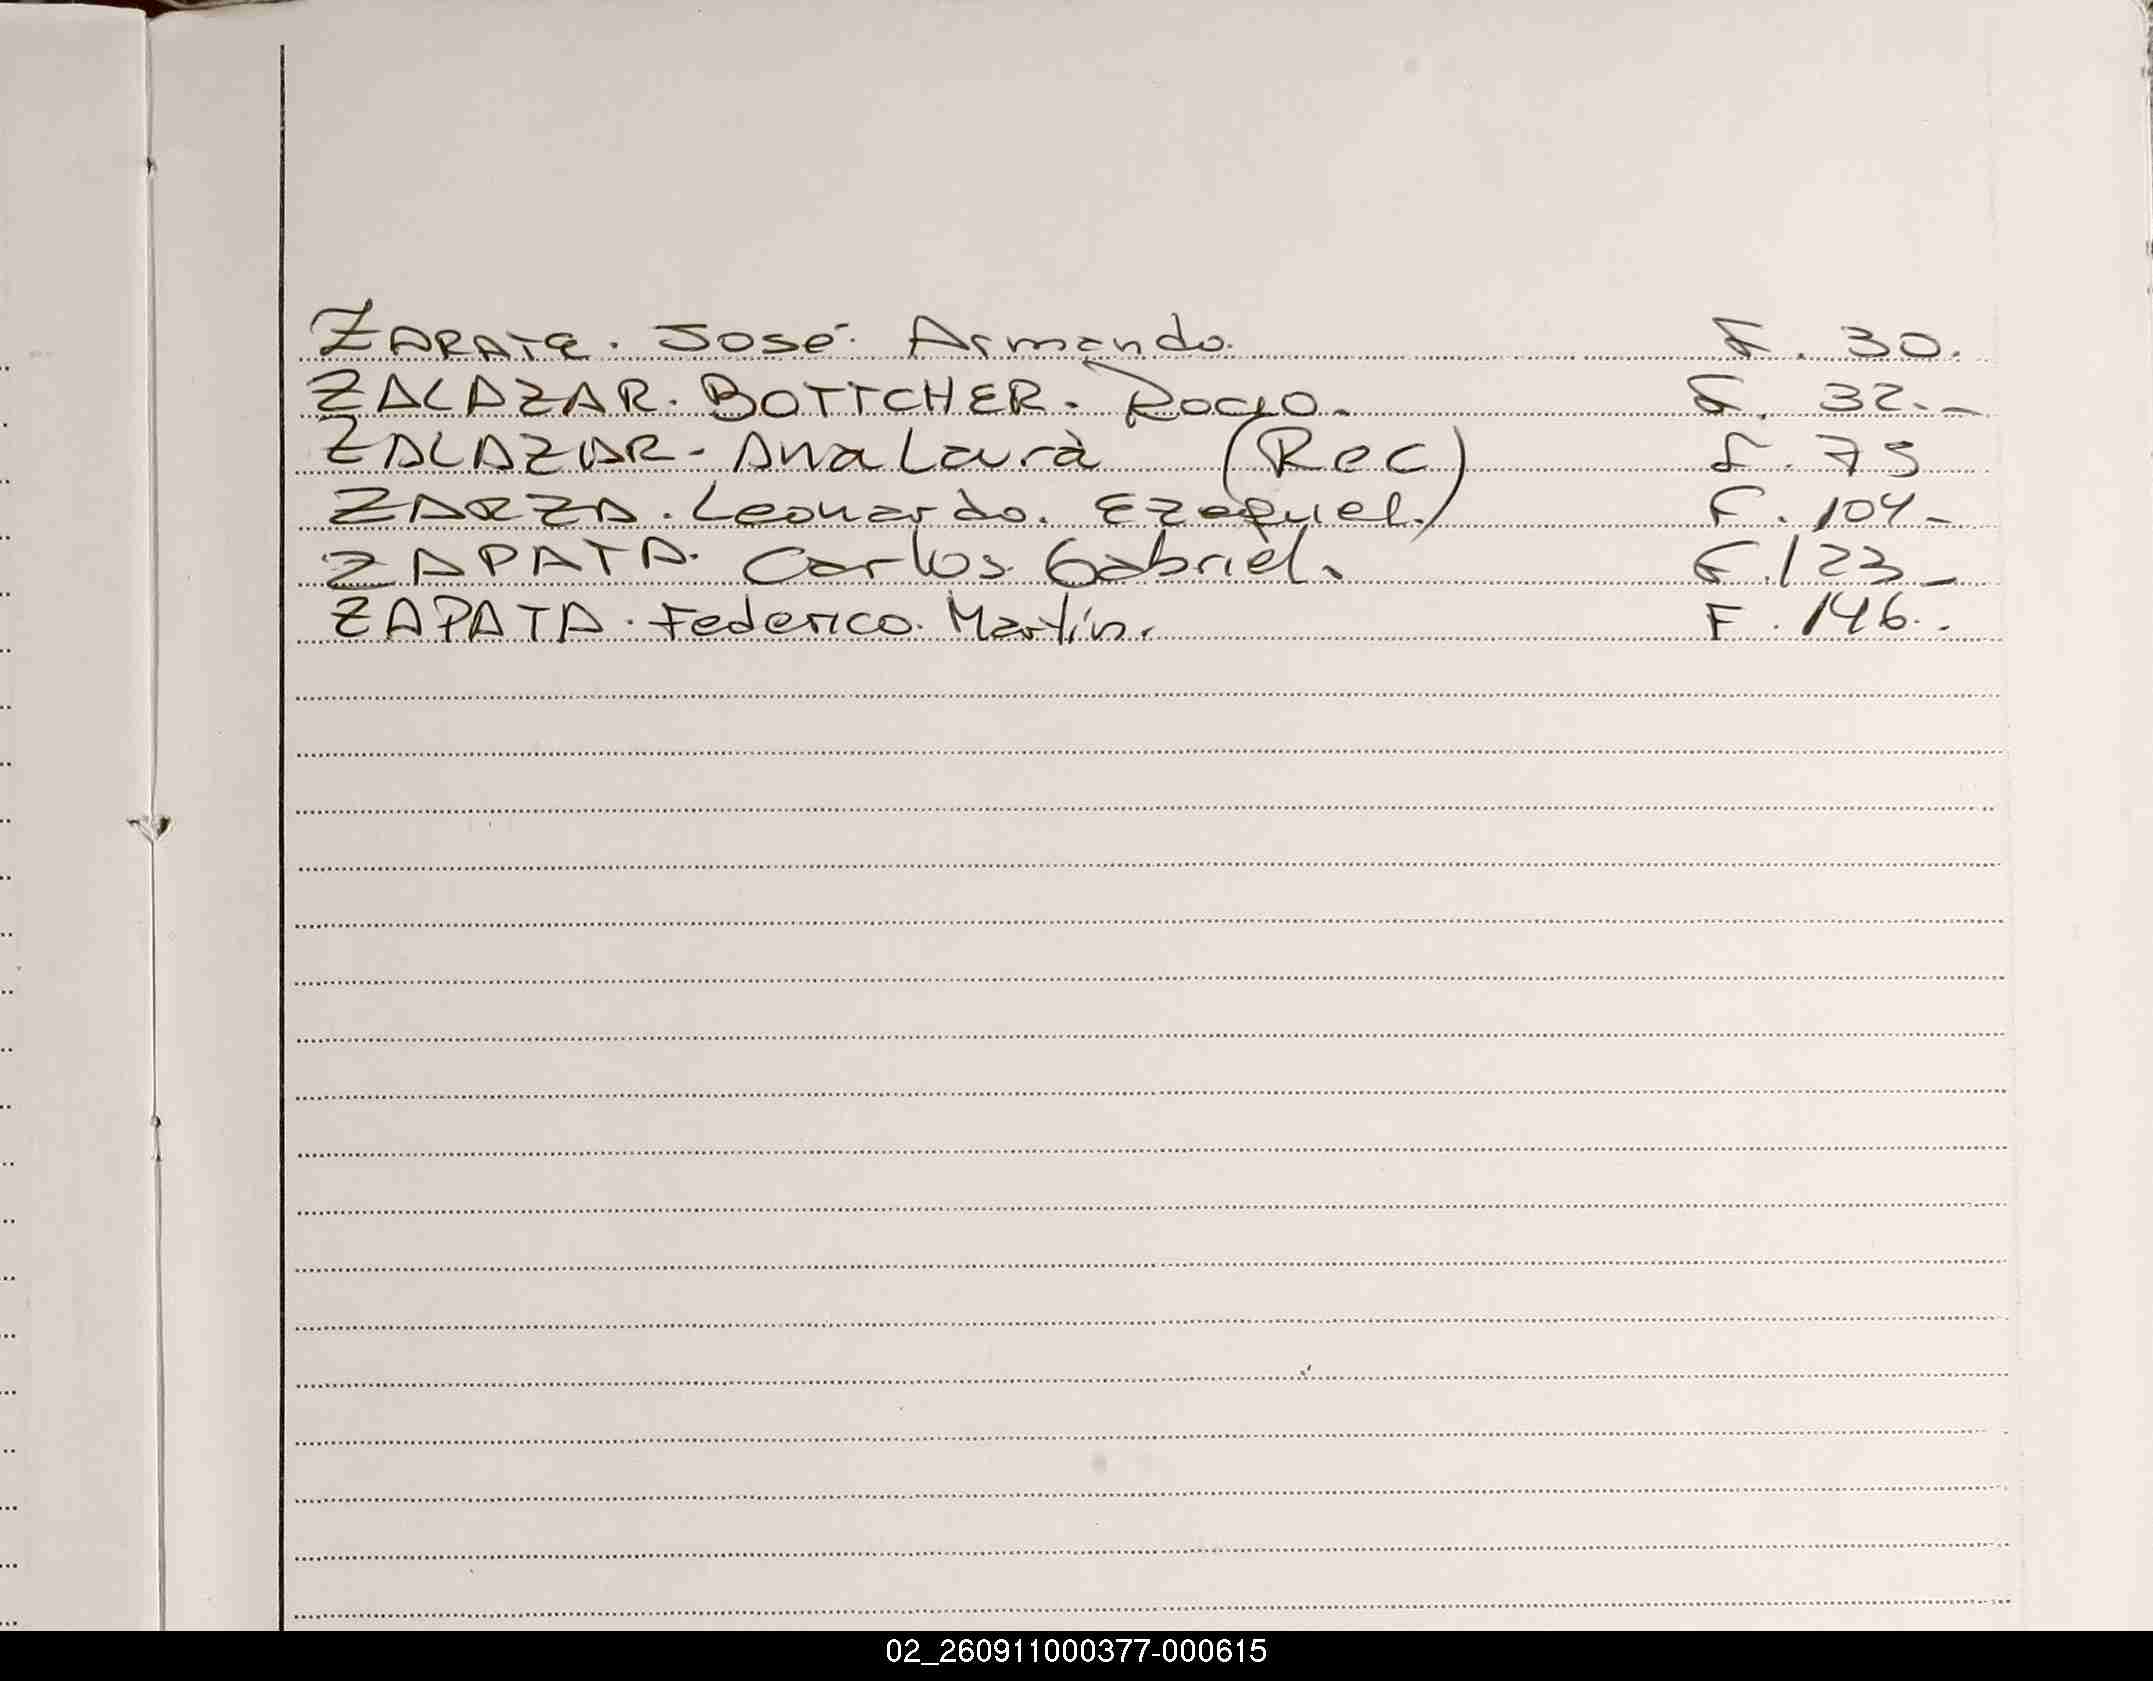 ZARATE. José. Armando. F. 30.
ZALAZAR. BOTTCHER. Rocio. F. 32.-
ZALAZAR- Ana Laura (Rec) F. 75
ZARZA. Leonardo. Ezequiel. F. 104-
ZAPATA. Carlos. Gabriel. F. 123-
ZAPATA. Federico. Martín. F. 146..
02_260911000377-000615